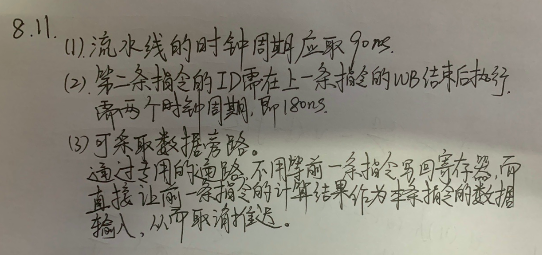 8.11.
(1).流水线的时钟周期应取90ns.
(2).第二条指令的ID需在上一条指令的WB结束后执行.
需两个时钟周期,即180ns.
(3)可采取数据旁路。
通过专用的通路,不用等前一条指令写回寄存器,而
直接让前一条指令的计算结果作为本条指令的数据
输入,从而取消推迟。